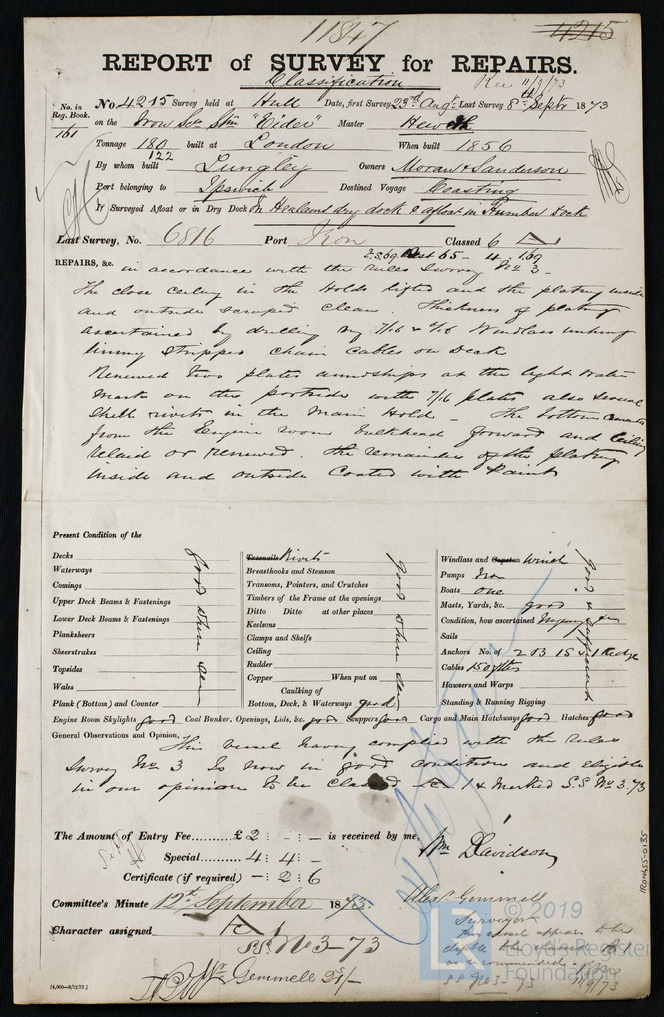 11847
4215
REPORT of SURVEY for REPAIRS.
Classification
Rec 11/9/73
No. in Reg. Book.
161
No. 4215 Survey held at Hull Date, first Survey 23rd Augt Last Survey 8th Septr 1873
on the Iron Scr Stm "Eider" Master
Tonnage 180 built at London When built 1856
122
By whom built Lungley Owners Moran & Sanderson
Port belonging to Ipswich Destined Voyage Coasting
If Surveyed Afloat or in Dry Dock In dry dock & afloat in Humber Dock
Last Survey, No. 6816 Port Classed 6 A
REPAIRS, &c. in accordance with the rules Survey No 3 -
The close ceiling in the Holds lifted and the plating inside
and outside scraped clean. Thickness of plating
ascertained by drilling Windlass
stripped chain cables on Deck
Renewed two plates amidships at the light water
marks on the portside with 7/16 plates also several
shell rivets in the Main Hold - The bottom cement
from the Engine room bulkhead forward and ceiling
relaid or renewed. The remainder of the plating
inside and outside coated with Paint
Present Condition of the
Decks
Waterways
Comings
Upper Deck Beams & Fastenings
Lower Deck Beams & Fastenings
Planksheers
Sheerstrakes
Topsides
Wales
Plank (Bottom) and Counter
Good where seen
Treenails Rivets
Breasthooks and Stemson
Transoms, Pointers, and Crutches
Timbers of the Frame at the openings
Ditto Ditto at other places
Keelsons
Clamps and Shelfs
Ceiling
Rudder
Copper When put on
Caulking of
Bottom, Deck, & Waterways good
Good where seen
Windlass and Capstan Winch
Pumps Iron
Boats one
Masts, Yards, &c. good
Condition, how ascertained
Sails
Anchors No. of 2 B 1 S & 1 Kedge
Cables 150 fths
Hawsers and Warps
Standing & Running Rigging
Good & sufficient
Engine Room Skylights good Coal Bunker, Openings, Lids, &c. good Scuppers good Cargo and Main Hatchways good Hatches good
General Observations and Opinion, This vessel having complied with the rules
Survey No 3 Is now in good condition and eligible
in our opinion to be classed A 1 & Marked S.S No 3. 73
The Amount of Entry Fee..........£ 2 : - : - is received by me,
Special.......... 4 : 4 : -
Certificate (if required) - : 2 : 6
Wm Davidson
Committee's Minute 12th September 1873.
Alexr Gemmell
Surveyors
Character assigned A 1
SS No 3-73
Mr Gemmell 25/-
This vessel appears to be
eligible to be classed
as recommended
SS No 3 - 73
11/9/73
[4,000—8/12/72.]
IRON455-0135
© 2019
Lloyd's Register
Foundation